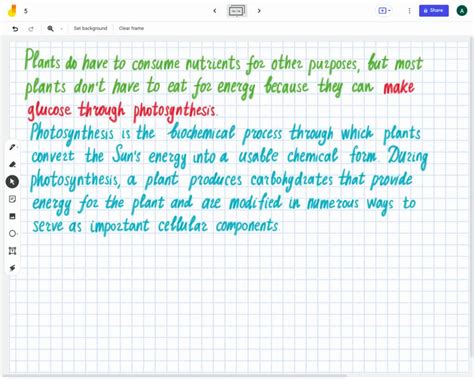 5
Share
A
Set background
Clear frame
Plants do have to consume nutrients for other purposes, but most
plants don't have to eat for energy because they can make
glucose through photosynthesis.
Photosynthesis is the biochemical process through which plants
convert the Sun's energy into a usable chemical form. During
photosynthesis, a plant produces carbohydrates that provide
energy for the plant and are modified in numerous ways to
serve as important cellular components